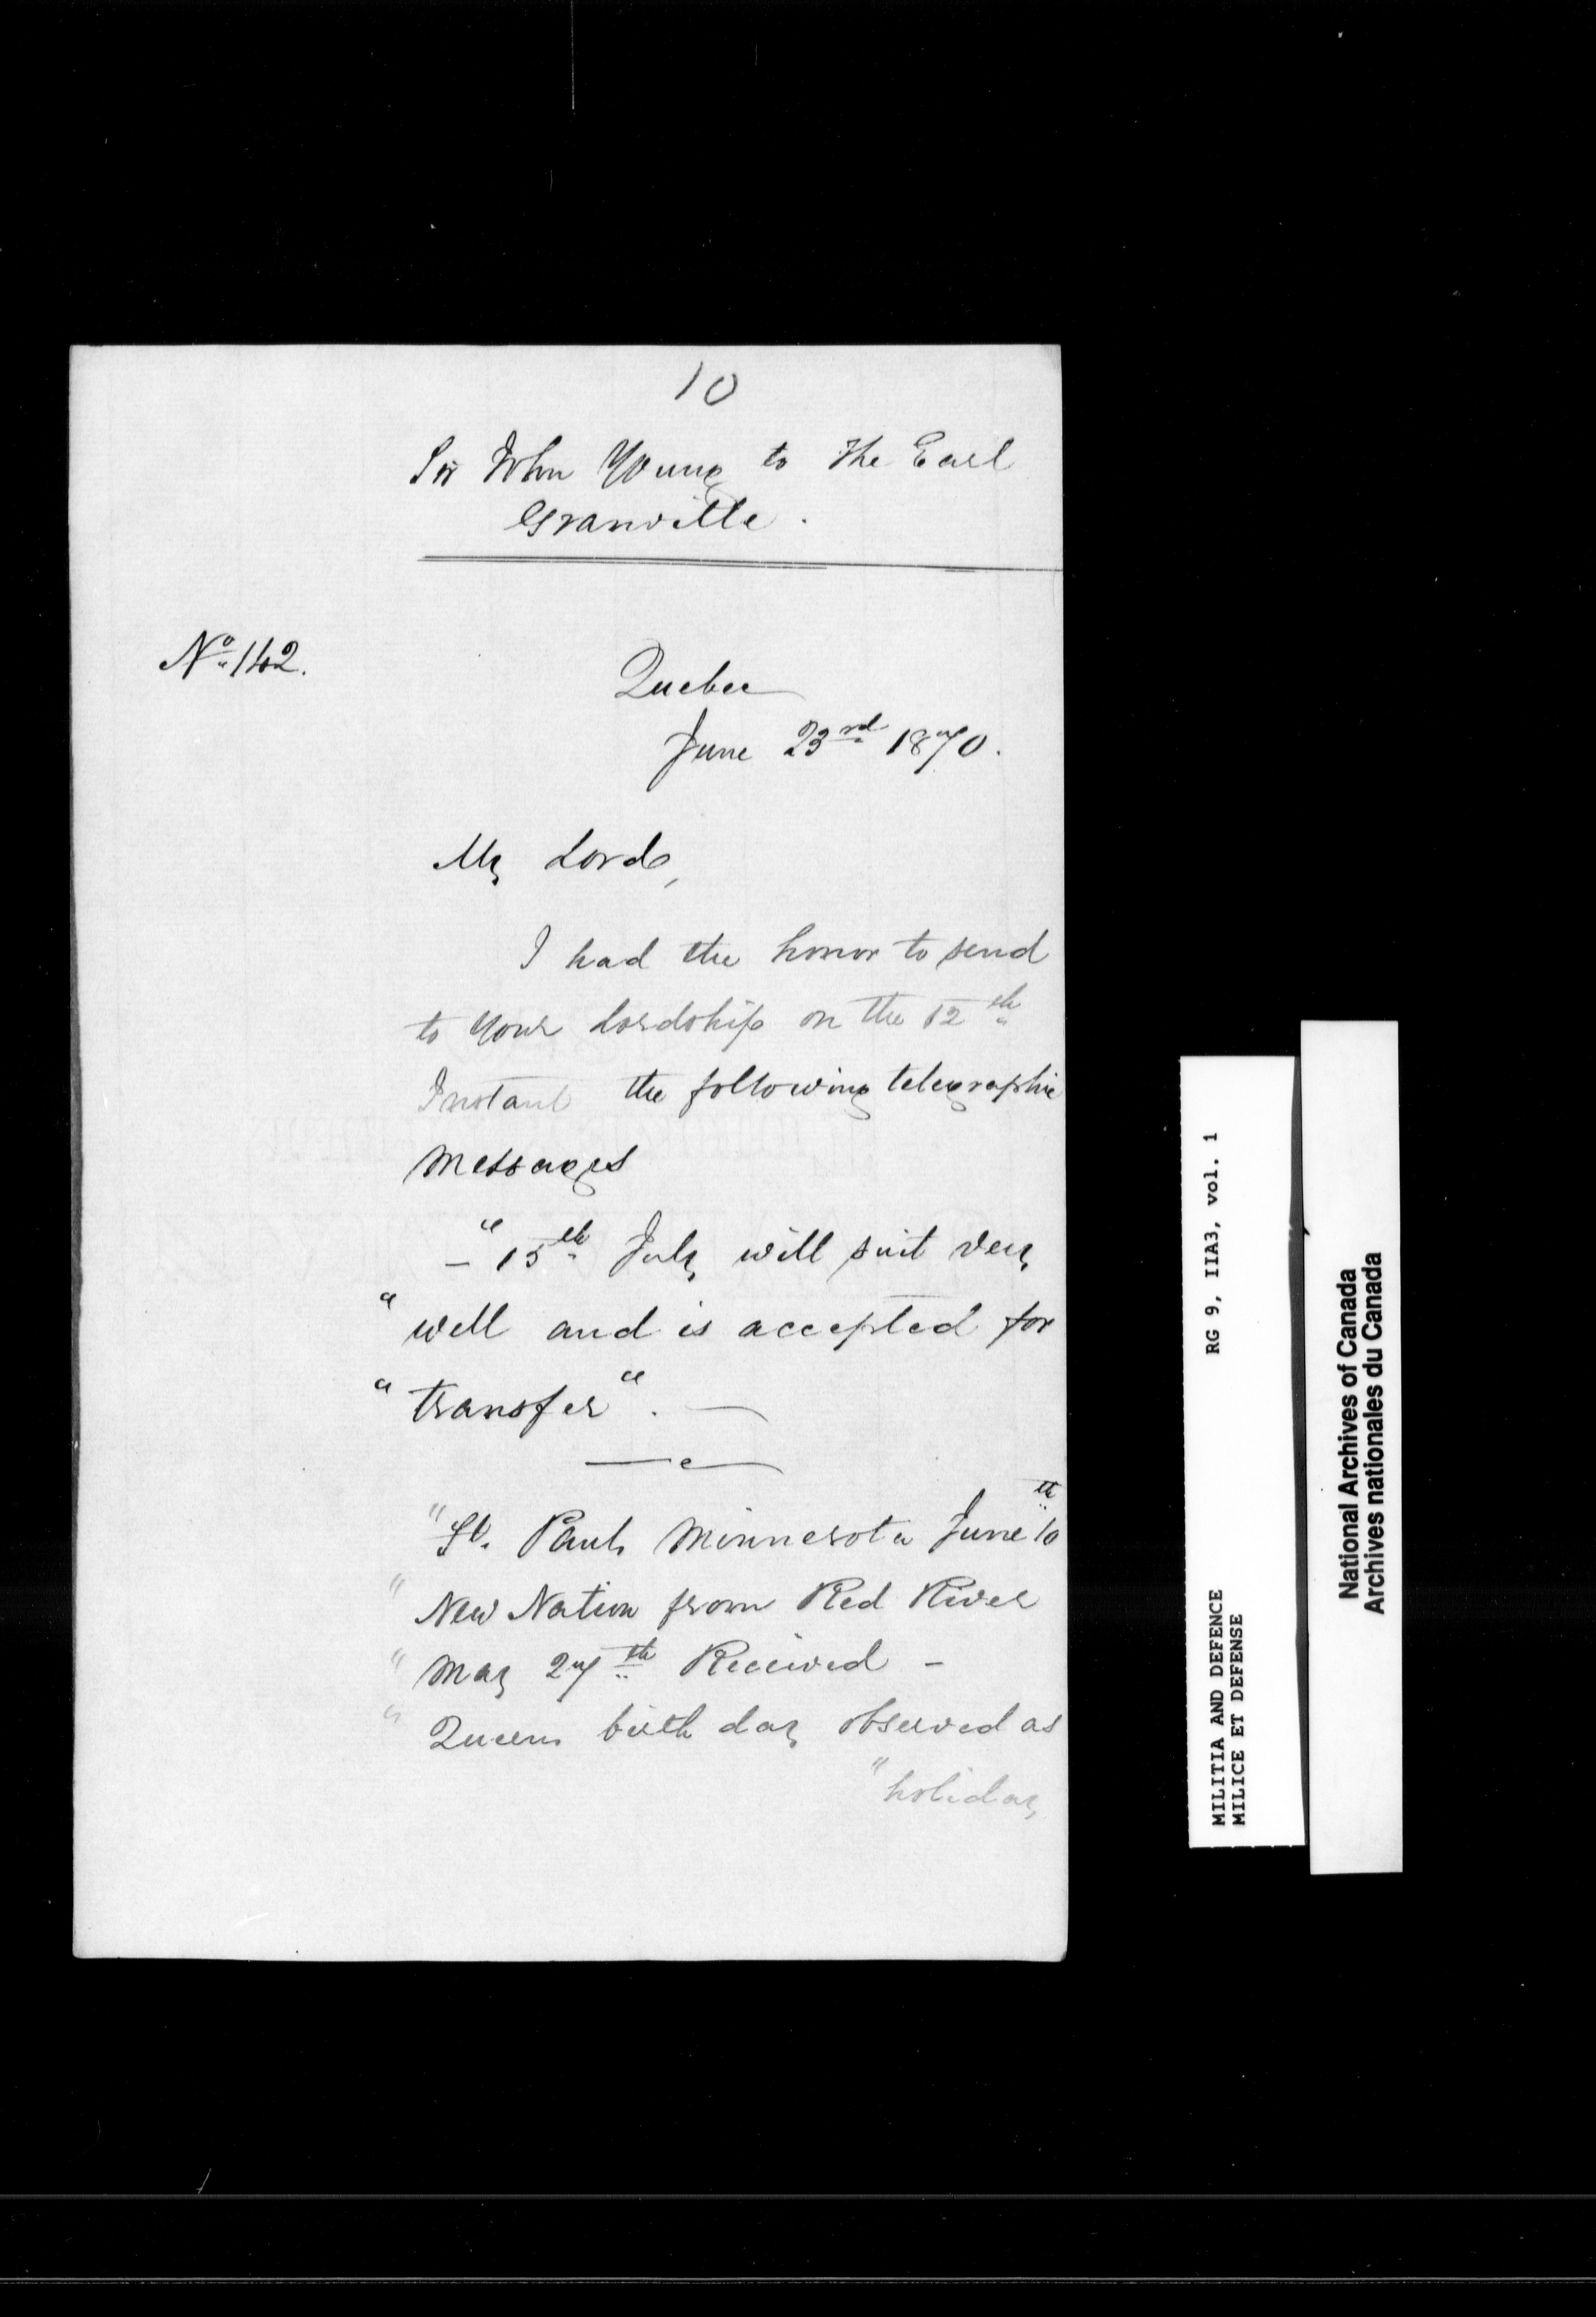 10
Sir John Young to the Earl
Granville.
No. 142.
Quebec
June 23rd 1870.
My Lord,
I had the honor to send
to Your Lordship on the 12th
Instant the following telegraphic
messages
- "15th July will suit very
" well and is accepted for
" transfer". —
"St. Paul, Minnesota June 10th
" New Nation from Red River
" May 27th Received -
" Queens birth day observed as
" holiday
MILITIA AND DEFENCE RG 9, IIA3, vol. 1
MILICE ET DEFENSE
National Archives of Canada
Archives nationales du Canada